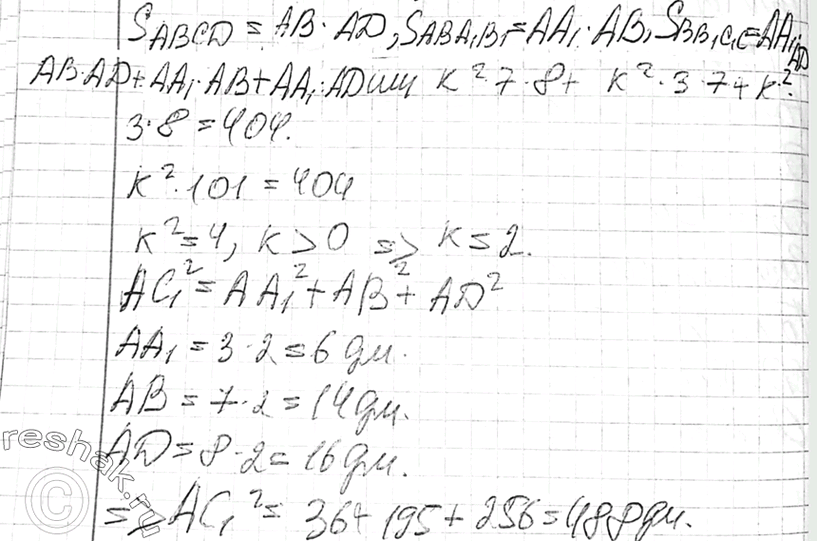 S_ABCD = AB · AD, S_ABA₁B₁ = AA₁ · AB, S_BB₁C₁C = AA₁ · AD
AB·AD + AA₁·AB + AA₁·AD или k² · 7 · 8 + k² · 3 · 7 + k² ·
3 · 8 = 404.
k² · 101 = 404
k² = 4, k > 0 => k = 2.
AC₁² = AA₁² + AB² + AD²
AA₁ = 3 · 2 = 6 дм.
AB = 7 · 2 = 14 дм.
AD = 8 · 2 = 16 дм.
=> AC₁² = 36 + 195 + 256 = 488 дм.
reshak.ru
©